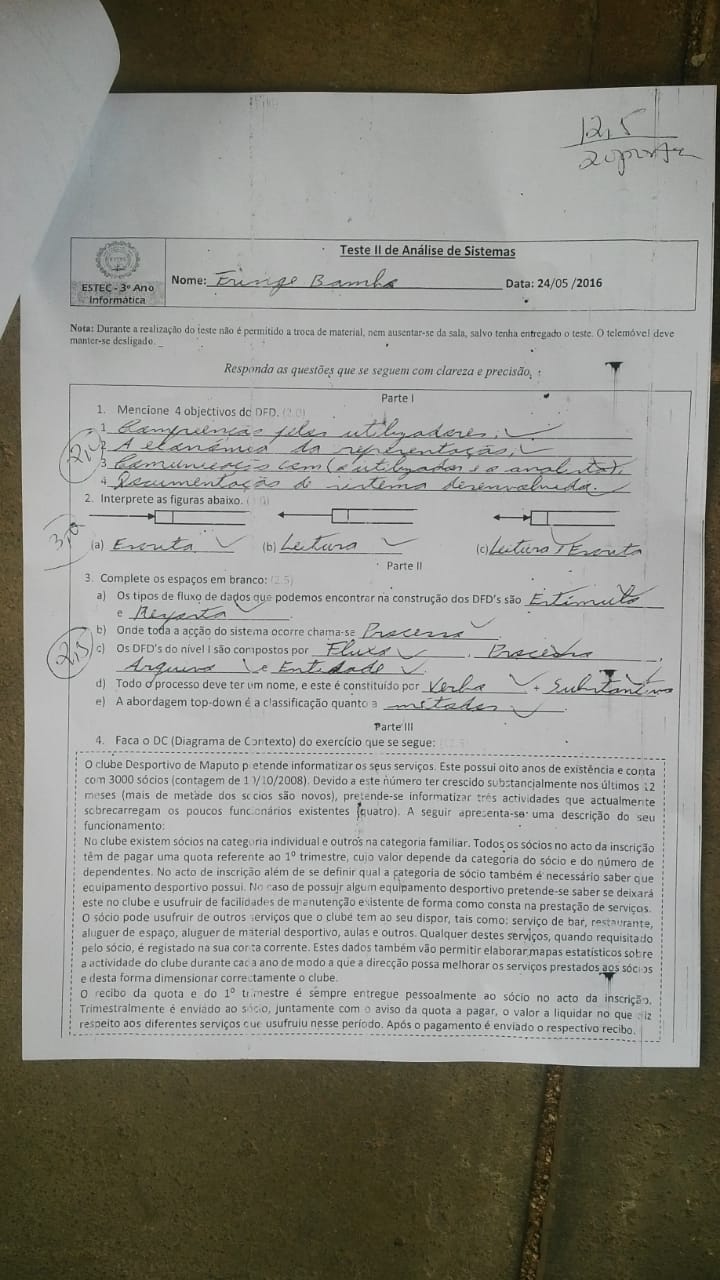 12,5
ESTEC - 3º Ano
Informática
Teste II de Análise de Sistemas
Nome: Bamba Data: 24/05 /2016
Nota: Durante a realização do teste não é permitido a troca de material, nem ausentar-se da sala, salvo tenha entregado o teste. O telemóvel deve
manter-se desligado.
Responda as questões que se seguem com clareza e precisão,
Parte I
1. Mencione 4 objectivos do DFD. (2.0)
1 pelos utilizadores;
2 A economia da representação;
3 Comunicação com (o utilizador e o analista);
4 Documentação do sistema desenvolvido.
2. Interprete as figuras abaixo.
3,0
(a) Escrita (b) Leitura (c) Leitura / Escrita
Parte II
3. Complete os espaços em branco: (2.5)
a) Os tipos de fluxo de dados que podemos encontrar na construção dos DFD's são Estímulo
e Resposta
b) Onde toda a acção do sistema ocorre chama-se Processo.
2,5
c) Os DFD's do nível I são compostos por Fluxo, Processo,
Arquivo e Entidade.
d) Todo o processo deve ter um nome, e este é constituído por Verbo + Substantivo
e) A abordagem top-down é a classificação quanto a métodos.
Parte III
4. Faca o DC (Diagrama de Contexto) do exercício que se segue:
O clube Desportivo de Maputo pretende informatizar os seus serviços. Este possui oito anos de existência e conta
com 3000 sócios (contagem de /10/2008). Devido a este número ter crescido substancialmente nos últimos 12
meses (mais de metade dos sócios são novos), pretende-se informatizar três actividades que actualmente
sobrecarregam os poucos funcionários existentes (quatro). A seguir apresenta-se uma descrição do seu
funcionamento:
No clube existem sócios na categoria individual e outros na categoria familiar. Todos os sócios no acto da inscrição
têm de pagar uma quota referente ao 1º trimestre, cujo valor depende da categoria do sócio e do número de
dependentes. No acto de inscrição além de se definir qual a categoria de sócio também é necessário saber que
equipamento desportivo possui. No caso de possuir algum equipamento desportivo pretende-se saber se deixará
este no clube e usufruir de facilidades de manutenção existente de forma como consta na prestação de serviços.
O sócio pode usufruir de outros serviços que o clube tem ao seu dispor, tais como: serviço de bar, restaurante,
aluguer de espaço, aluguer de material desportivo, aulas e outros. Qualquer destes serviços, quando requisitado
pelo sócio, é registado na sua conta corrente. Estes dados também vão permitir elaborar mapas estatísticos sobre
a actividade do clube durante cada ano de modo a que a direcção possa melhorar os serviços prestados aos sócios
e desta forma dimensionar correctamente o clube.
O recibo da quota e do 1º trimestre é sempre entregue pessoalmente ao sócio no acto da inscrição.
Trimestralmente é enviado ao sócio, juntamente com o aviso da quota a pagar, o valor a liquidar no que diz
respeito aos diferentes serviços que usufruiu nesse período. Após o pagamento é enviado o respectivo recibo.